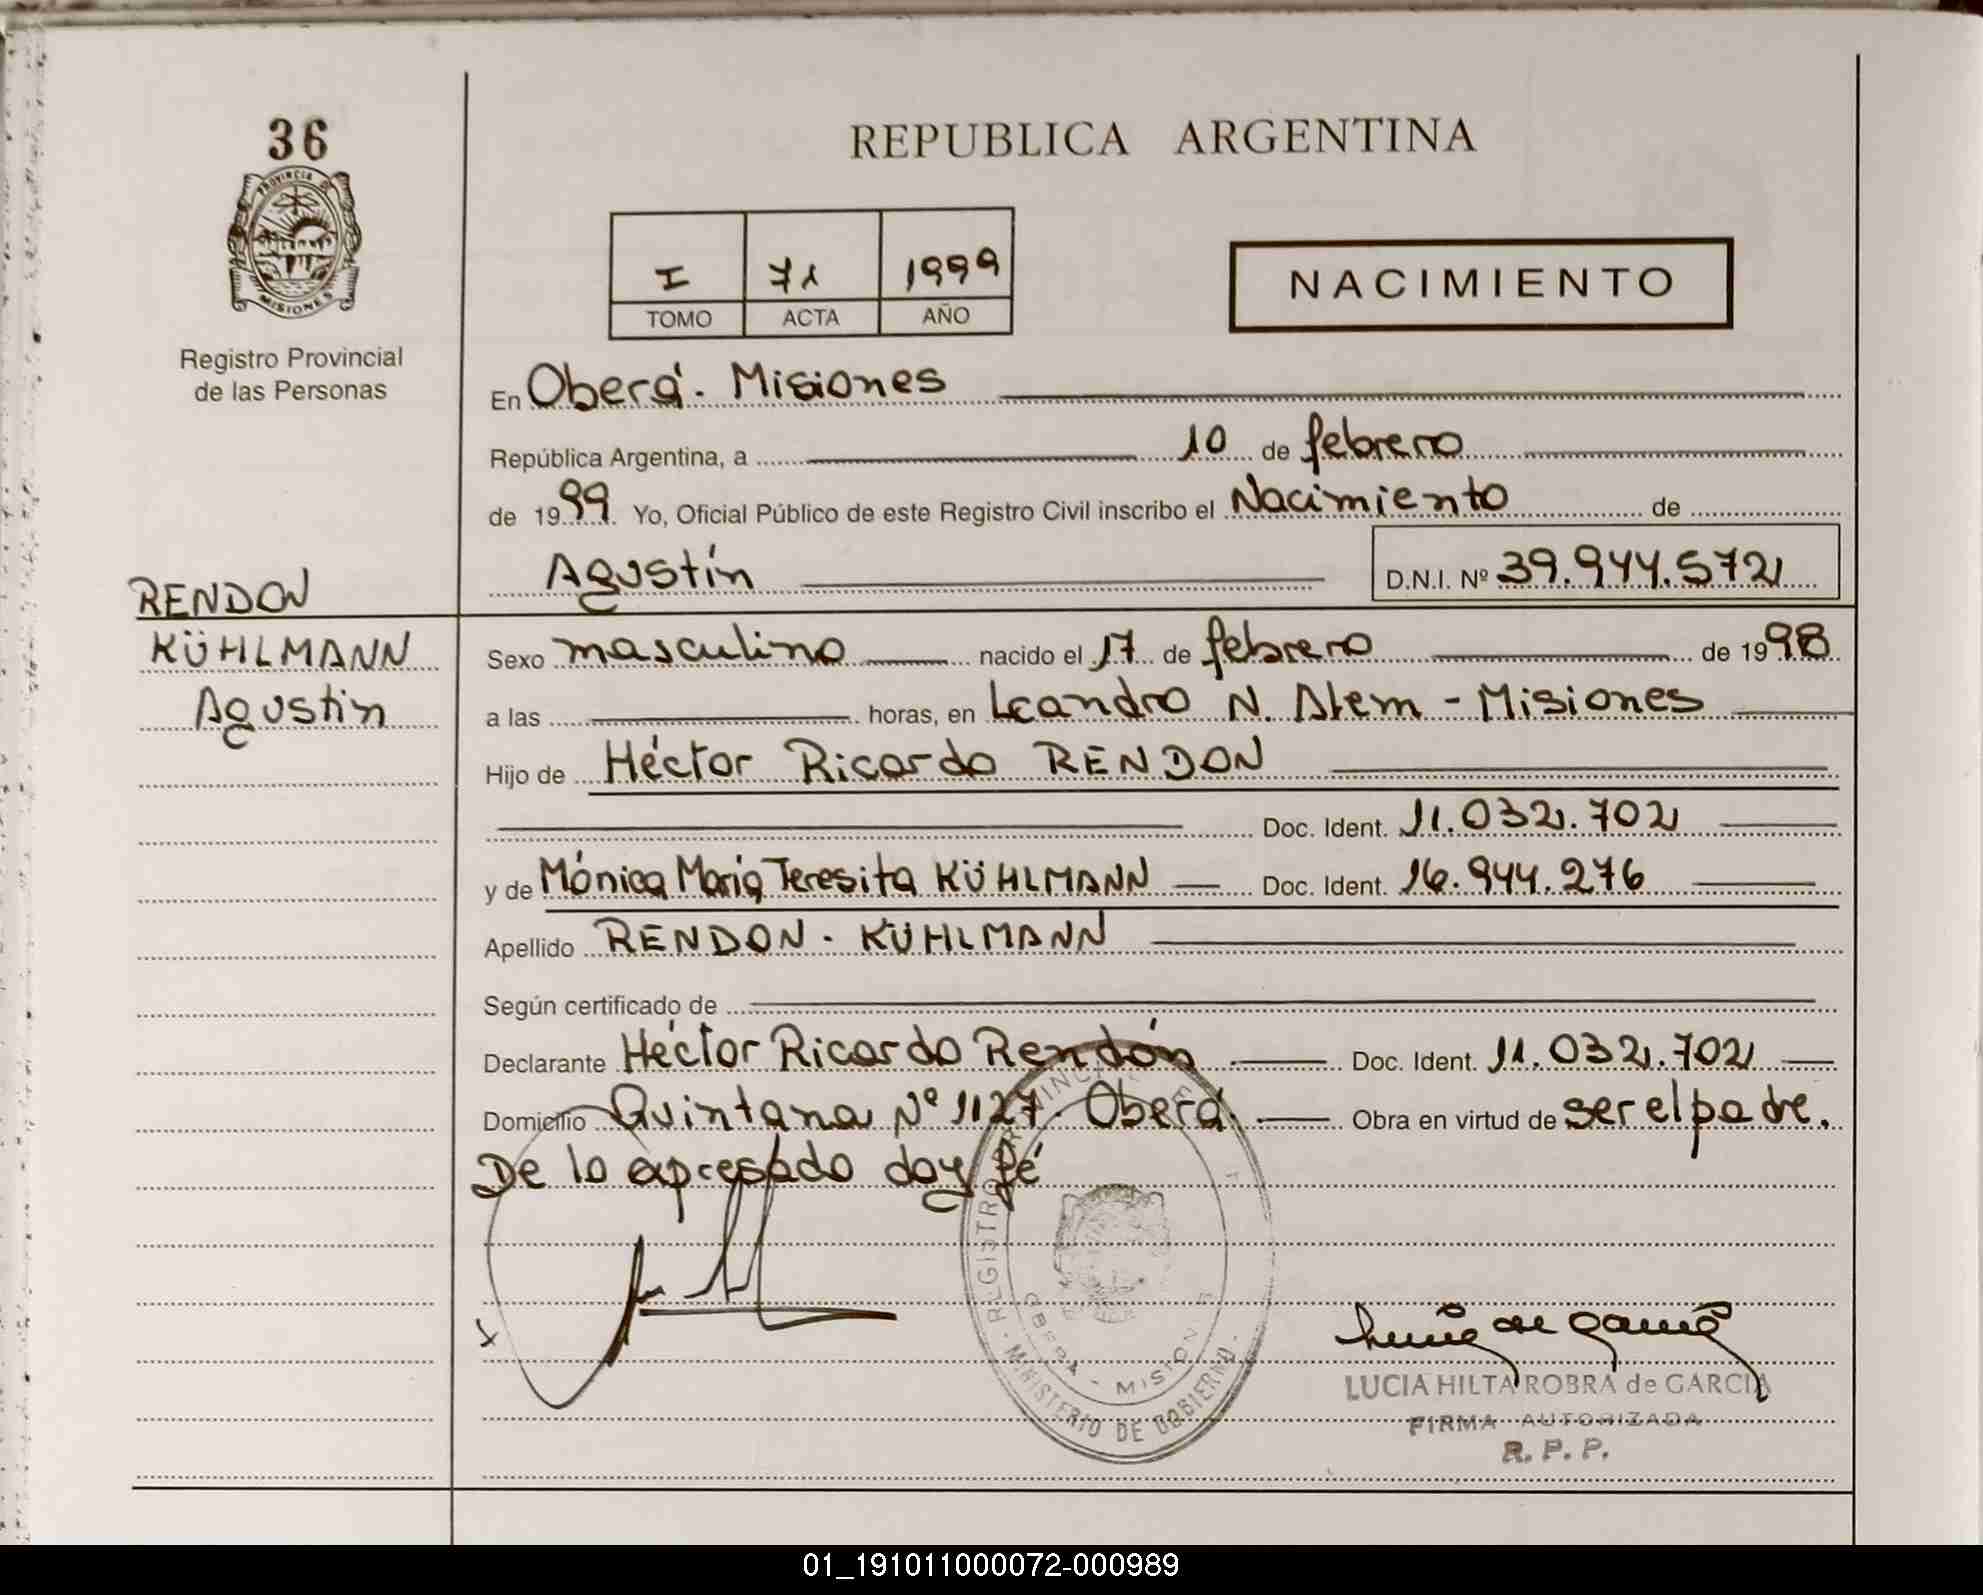 36
PROVINCIA DE
MISIONES
Registro Provincial
de las Personas
REPUBLICA ARGENTINA
I 71 1999
TOMO ACTA AÑO
NACIMIENTO
En Oberá. Misiones
República Argentina, a 10 de febrero
de 1999 Yo, Oficial Público de este Registro Civil inscribo el Nacimiento de
Agustín D.N.I. Nº 39.944.572
RENDON
KÜHLMANN
Agustin
Sexo masculino nacido el 17 de febrero de 1998
a las horas, en Leandro N. Alem - Misiones
Hijo de Héctor Ricardo RENDON
Doc. Ident. 11.032.702
y de Mónica María Teresita KÜHLMANN Doc. Ident. 16.944.276
Apellido RENDON - KÜHLMANN
Según certificado de
Declarante Héctor Ricardo Rendón Doc. Ident. 11.032.702
Domicilio Quintana Nº 1127. Oberá. Obra en virtud de ser el padre.
De lo apresado doy fé
REGISTRO
OBERA - MISIONES
MINISTERIO DE GOBIERNO
LUCIA HILTA ROBRA de GARCIA
FIRMA AUTORIZADA
R. P. P.
01_191011000072-000989